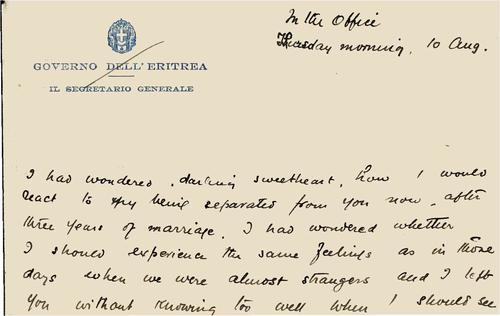 In the Office
Thursday morning, 10 Aug.
GOVERNO DELL'ERITREA
IL SEGRETARIO GENERALE
I had wondered, darling sweetheart, how I would
react to my being separated from you now, after
three years of marriage. I had wondered whether
I should experience the same feelings as in those
days when we were almost strangers and I left
you without knowing too well when I should see